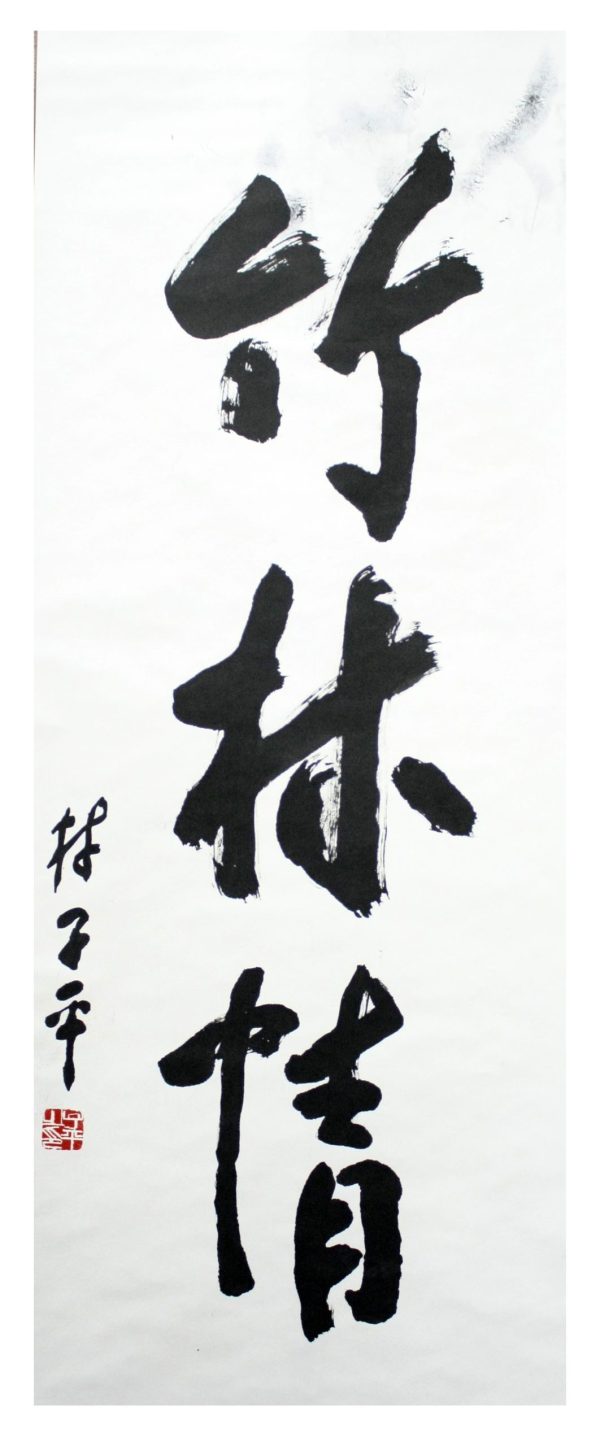 竹林情
林子平